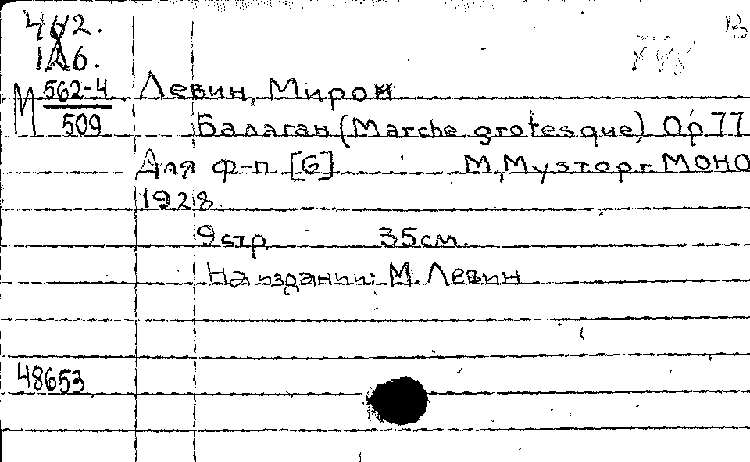 1А6.
М 562-4
509
Левин, Мирон
Балаган (Marche grotesque) Op 77
Для ф-п [G] М, Музторг. МОНО
1928.
9 стр 35 см.
На издании: М. Левин
48653